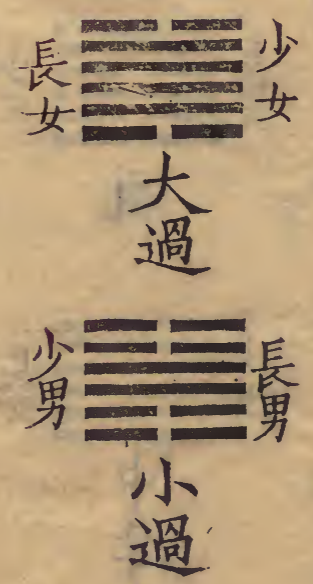 少女
長女
大過
長男
少男
小過